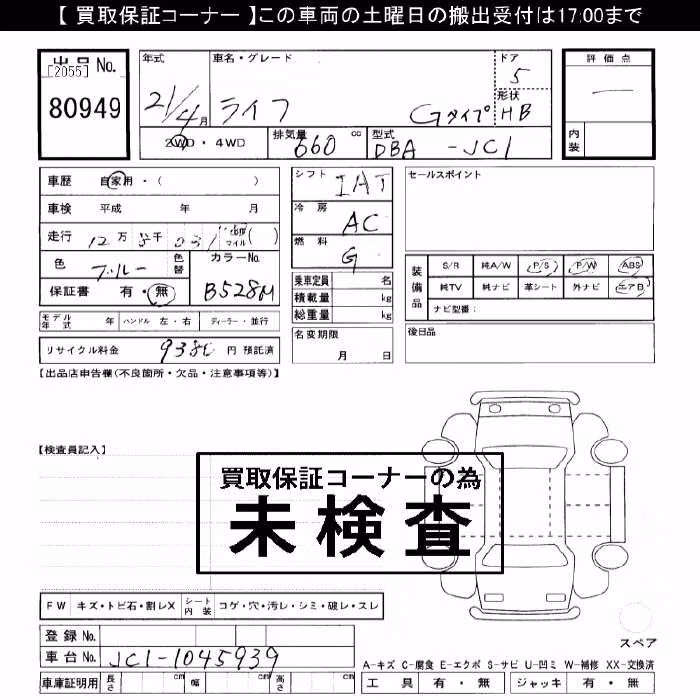 【 買取保証コーナー 】この車両の土曜日の搬出受付は17:00まで
出品 No.
[2055]
80949
年式
21/4月
車名・グレード
ライフ Gタイプ
ドア
5
形状
HB
評価点
一
内装
2WD・4WD
排気量 660 cc
型式 DBA -JC1
車歴 自家用・( )
車検 平成 年 月
走行 12万 千
マイル( )
色 ブルー
色替
カラーNo.
B528M
保証書 有・無
モデル年式 年
ハンドル 左・右
ディーラー・並行
リサイクル料金 9380 円 預託済
シフト IAT
冷房 AC
燃料 G
乗車定員 名
積載量 kg
総重量 kg
名変期限
月 日
セールスポイント
装備品
S/R 純A/W P/S P/W ABS
純TV 純ナビ 革シート 外ナビ エアB
ナビ型番:
後日品
【出品店申告欄(不良箇所・欠品・注意事項等)】
【検査員記入】
買取保証コーナーの為
未検査
FW キズ・トビ石・割レX
シート内装 コゲ・穴・汚レ・シミ・破レ・スレ
登録 No.
車台 No. JC1-1045939
車庫証明用 長さ cm 幅 cm 高さ cm
スペア
A-キズ C-腐食 E-エクボ S-サビ U-凹ミ W-補修 XX-交換済
工具 有・無 ジャッキ 有・無